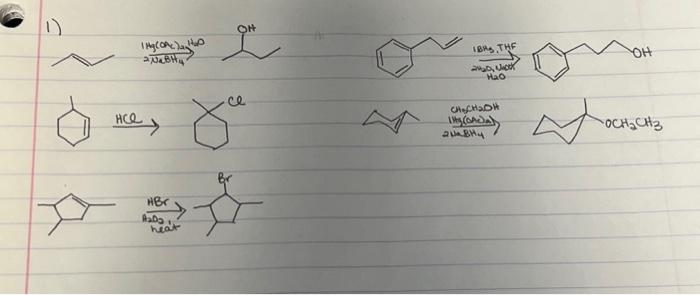 1)
1 Hg(OAc)2, H2O
2 NaBH4
OH
1 BH3, THF
2 H2O2, NaOH
H2O
OH
HCl
Cl
CH3CH2OH
1 Hg(OAc)2
2 NaBH4
OCH2CH3
HBr
H2O2,
heat
Br